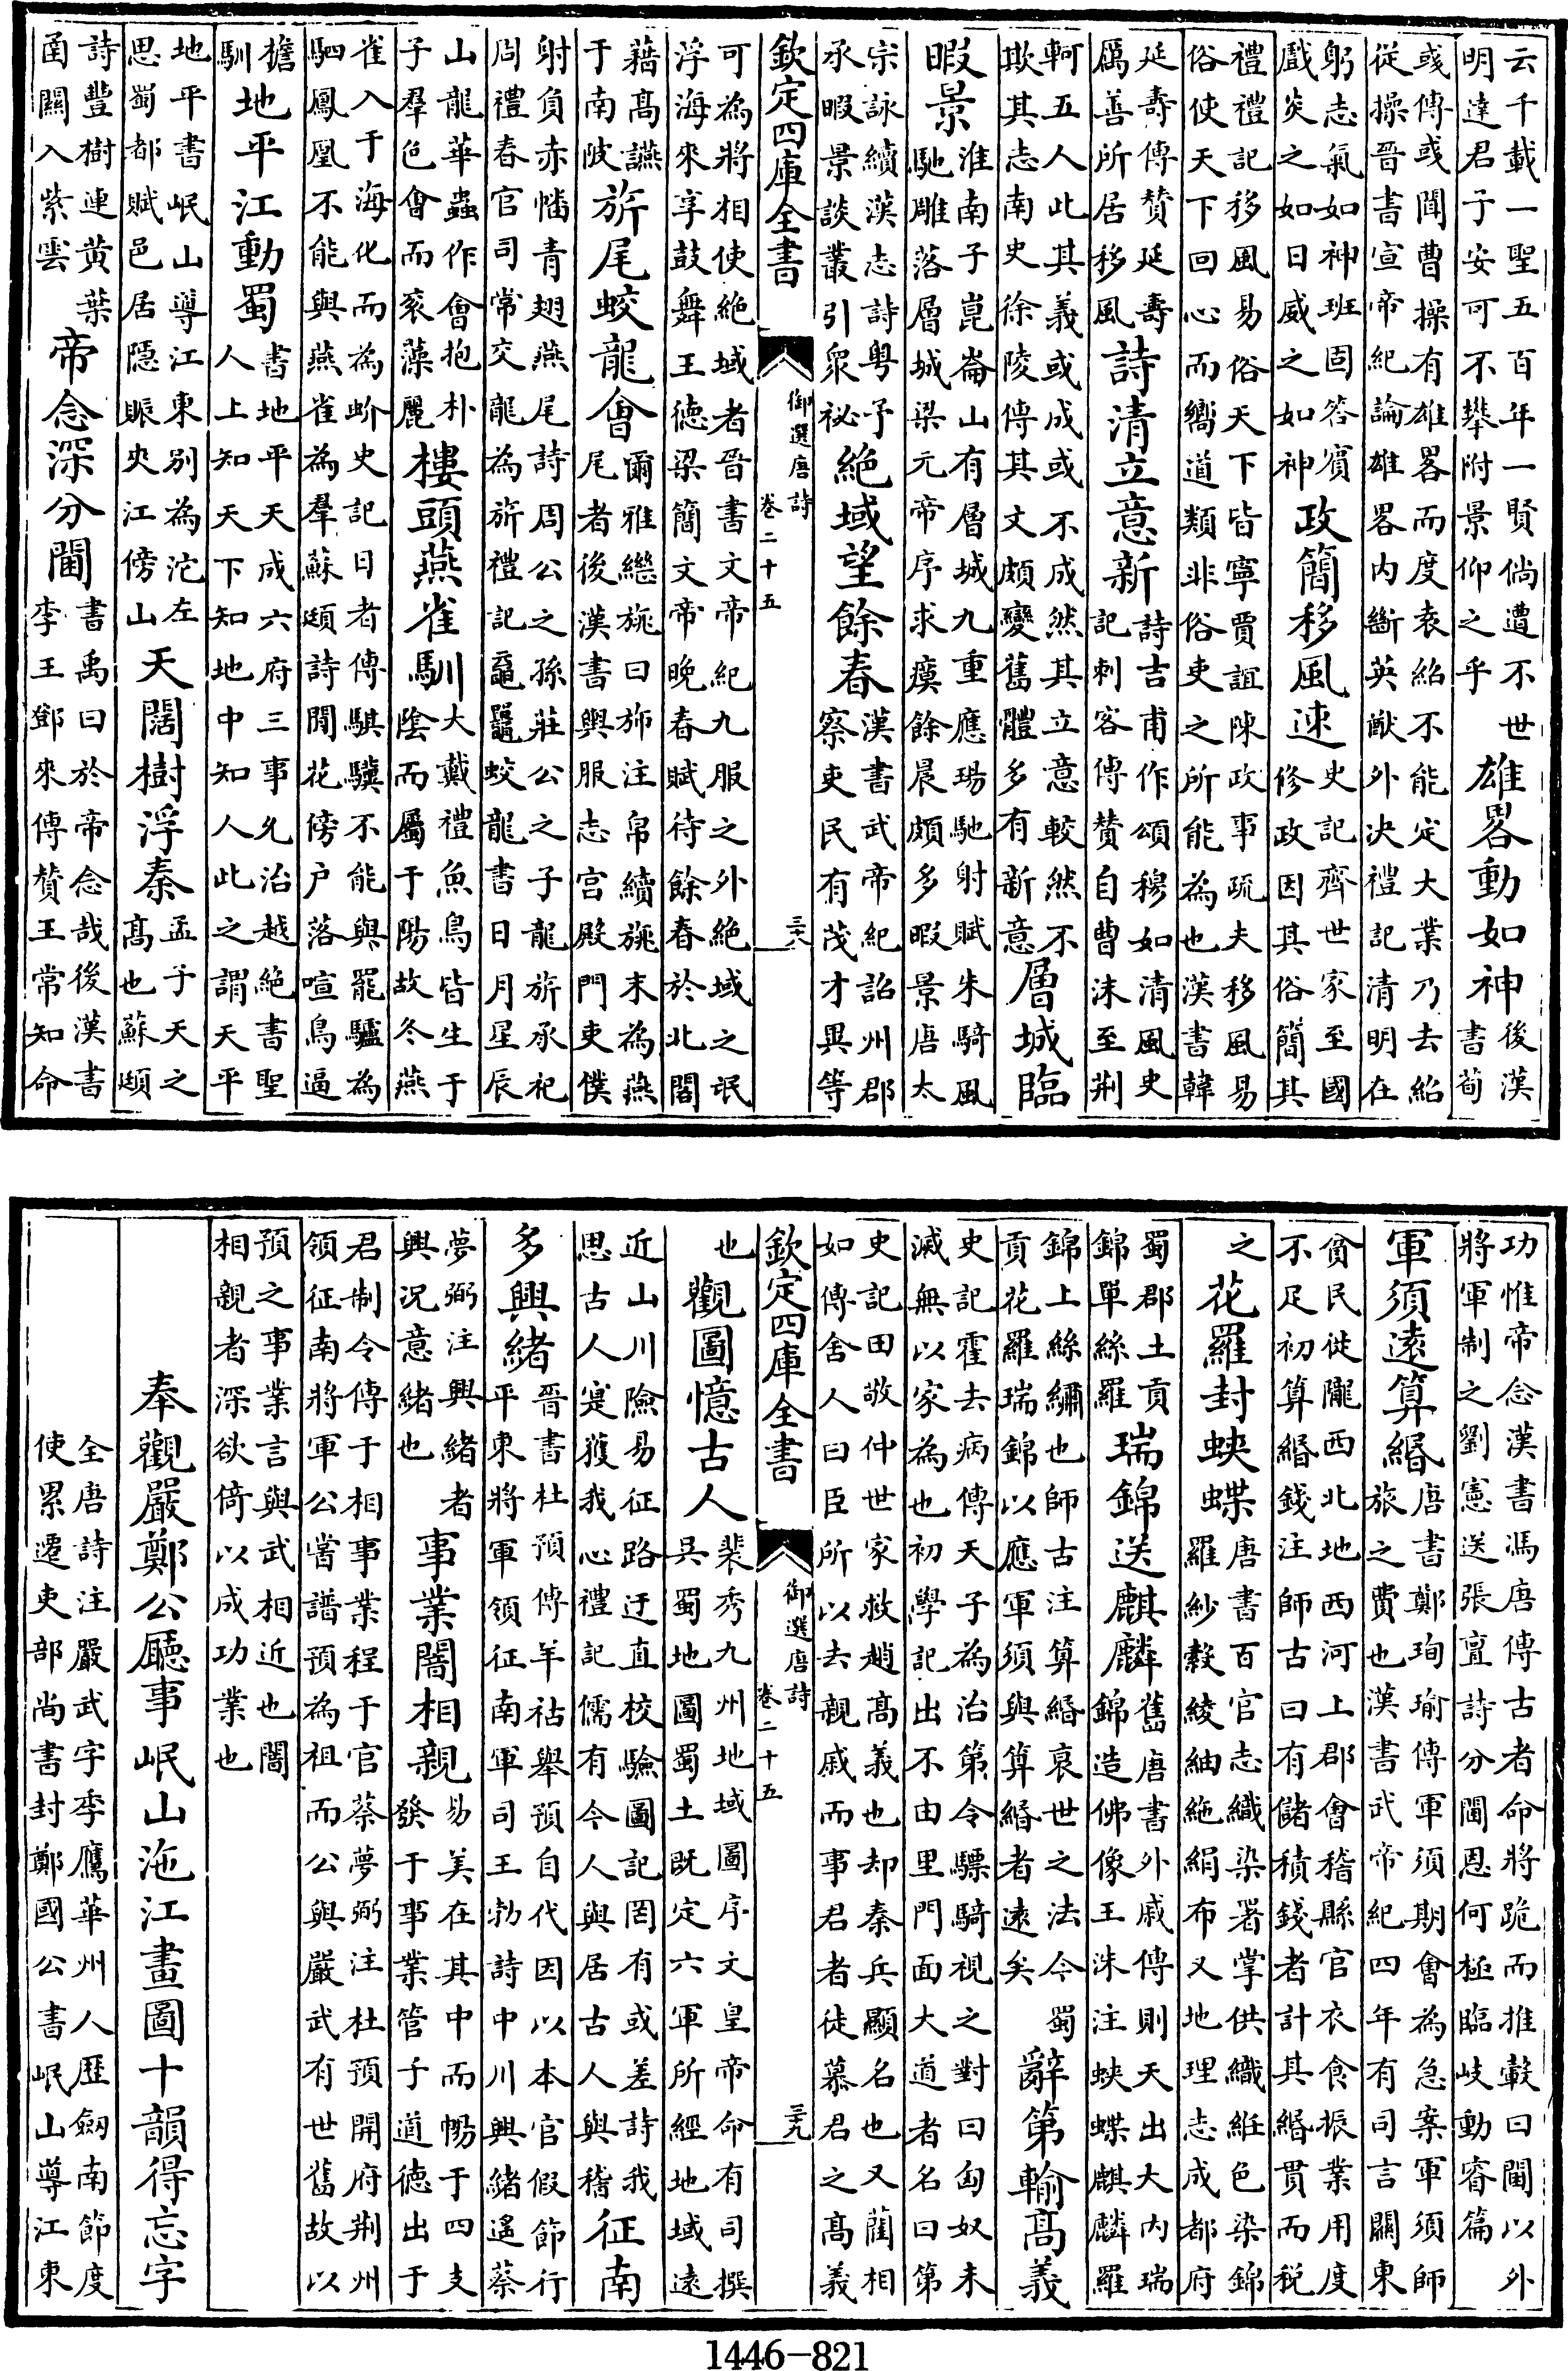 云千載一聖五百年一賢倘遭不世
明達君子安可不攀附景仰之乎
雄畧動如神
後漢
書荀
彧傳彧聞曹操有雄畧而度袁紹不能定大業乃去紹
從操晉書宣帝紀論雄畧内斷英猷外决禮記清明在
躬志氣如神班固答賓
戲炎之如日威之如神
政簡移風速
史記齊世家至國
修政因其俗簡其
禮禮記移風易俗天下皆寧賈誼陳政事疏夫移風易
俗使天下回心而嚮道類非俗吏之所能為也漢書韓
延壽傳贊延壽
厲善所居移風
詩清立意新
詩吉甫作頌穆如清風史
記刺客傳贊自曹沬至荆
軻五人此其義或成或不成然其立意較然不
欺其志南史徐陵傳其文頗變舊體多有新意
層城臨
暇景
淮南子崑崙山有層城九重應瑒馳射賦朱騎風
馳雕落層城梁元帝序求瘼餘晨頗多暇景唐太
宗詠續漢志詩粤予
承暇景談叢引眾祕
絶域望餘春
漢書武帝紀詔州郡
察吏民有茂才異等
欽定四庫全書
御選唐詩
卷二十五
三八
可為將相使絶域者晉書文帝紀九服之外絶域之氓
浮海來享鼓舞王徳梁簡文帝晚春賦待餘春於北閣
藉髙讌
于南陂
旂尾蛟龍會
爾雅繼旐曰斾注帛續旐末為燕
尾者後漢書輿服志宫殿門吏僕
射負赤幡青翅燕尾詩周公之孫莊公之子龍旂承祀
周禮春官司常交龍為旂禮記黿鼉蛟龍書日月星辰
山龍華蟲作會抱朴
子羣色會而衮藻麗
樓頭燕雀馴
大戴禮魚鳥皆生于
陰而屬于陽故冬燕
雀入于海化而為蚧史記日者傳騏驥不能與罷驢為
駟鳳凰不能與燕雀為羣蘇頲詩閒花傍户落喧鳥逼
檐
馴
地平江動蜀
書地平天成六府三事允治越絶書聖
人上知天下知地中知人此之謂天平
地平書岷山導江東别為沱左
思蜀都賦邑居隱賑夾江傍山
天闊樹浮秦
孟子天之
髙也蘇頲
詩豐樹連黄葉
函闗入紫雲
帝念深分閫
書禹曰於帝念哉後漢書
李王鄧來傳贊王常知命
功惟帝念漢書馮唐傳古者命將跪而推轂曰閫以外
將軍制之劉憲送張亶詩分閫恩何極臨岐動睿篇
軍須逺算緡
唐書鄭珣瑜傳軍須期會為急案軍須師
旅之費也漢書武帝紀四年有司言闗東
貧民徙隴西北地西河上郡會稽縣官衣食振業用度
不足初算緡錢注師古曰有儲積錢者計其緡貫而税
之
花羅封蛺蝶
唐書百官志織染署掌供織絍色染錦
羅紗縠綾紬絁絹布又地理志成都府
蜀郡土貢
錦單絲羅
瑞錦送麒麟
舊唐書外戚傳則天出大内瑞
錦造佛像王洙注蛺蝶麒麟羅
錦上絲繡也師古注算緡哀世之法今蜀
貢花羅瑞錦以應軍須與算緡者逺矣
辭第輸髙義
史記霍去病傳天子為治第令驃騎視之對曰匈奴未
滅無以家為也初學記出不由里門面大道者名曰第
史記田敬仲世家救趙髙義也却秦兵顯名也又藺相
如傳舍人曰臣所以去親戚而事君者徒慕君之髙義
欽定四庫全書
御選唐詩
卷二十五
三九
也
觀圖憶古人
裴秀九州地域圖序文皇帝命有司撰
吳蜀地圖蜀土既定六軍所經地域逺
近山川險易征路迂直校驗圖記罔有或差詩我
思古人寔獲我心禮記儒有今人與居古人與稽
征南
多興緒
晉書杜預傳羊祜舉預自代因以本官假節行
平東將軍領征南軍司王勃詩中川興緒遙蔡
夢弼注興緒者
興况意緒也
事業闇相親
易美在其中而暢于四支
發于事業管子道徳出于
君制令傳于相事業程于官蔡夢弼注杜預開府荆州
領征南將軍公嘗譜預為祖而公與嚴武有世舊故以
預之事業言與武相近也闇
相親者深欲倚以成功業也
奉觀嚴鄭公廳事岷山沲江畫圖十韻得忘字
全唐詩注嚴武字季鷹華州人歴劒南節度
使累遷吏部尚書封鄭國公書岷山導江東
1446-821